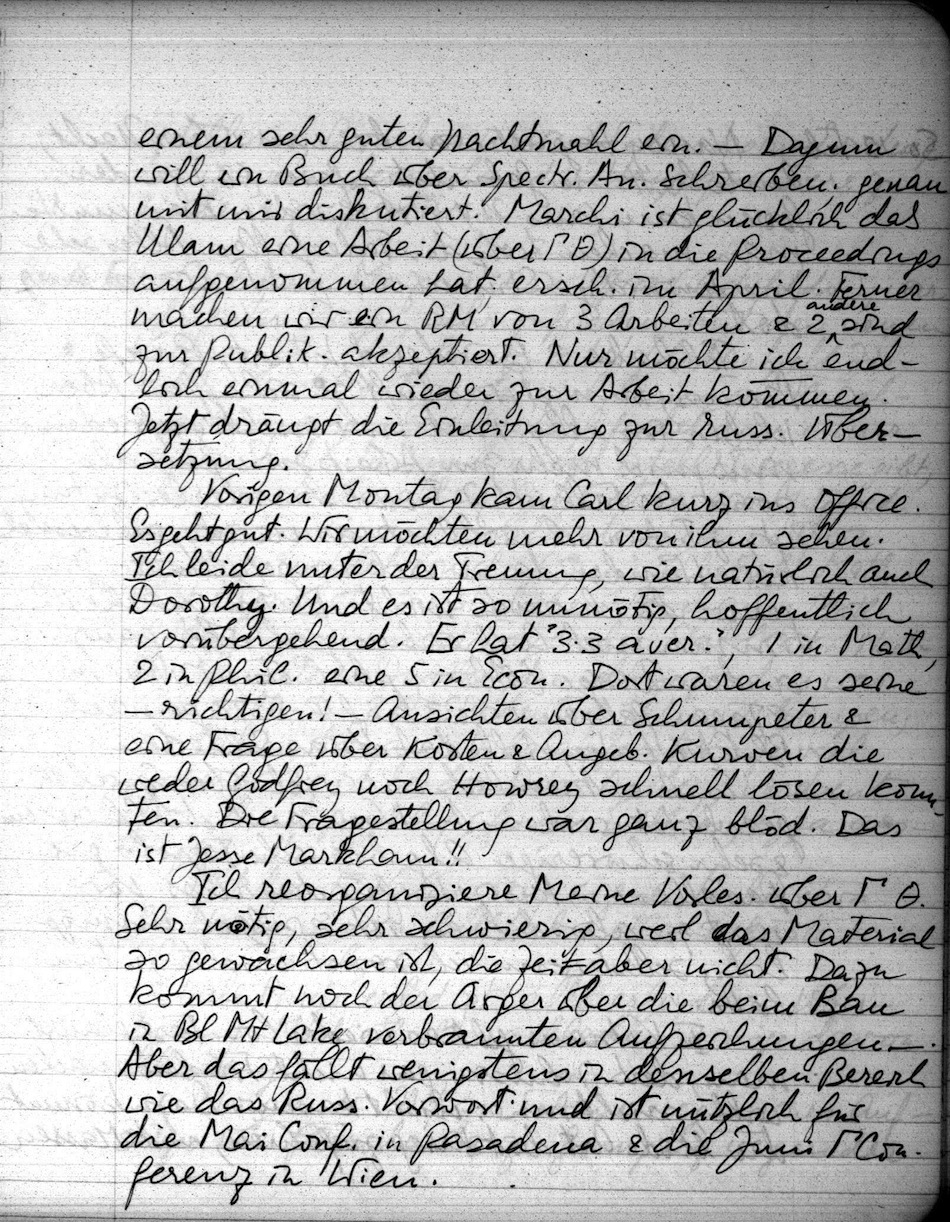 einem sehr guten Nachtmahl ein. — Dagum
will ein Buch über Spectr. An. schreiben. genau
mit mir diskutiert. Maschi ist glücklich das
Ulam eine Arbeit (über Γ Θ) in die Proceedings
aufgenommen hat; ersch. im April. Ferner
machen wir ein RM von 3 Arbeiten & 2 andere sind
zur Publik. akzeptiert. Nur möchte ich end-
lich einmal wieder zur Arbeit kommen.
Jetzt drängt die Einleitung zur russ. Über-
setzung.
Vorigen Montag kam Carl kurz ins Office.
Es geht gut. Wir möchten mehr von ihm sehen.
Ich leide unter der Trennung, wie natürlich auch
Dorothy. Und es ist so unnötig, hoffentlich
vorübergehend. Er hat "3.3 aver.", 1 in Math,
2 in Phil. eine 5 in Econ. Dort waren es seine
— richtigen! — Ansichten über Schumpeter &
eine Frage über Kosten & Angeb. Kurven die
weder Godfrey noch Howrey schnell lösen konn-
ten. Die Fragestellung war ganz blöd. Das
ist Jesse Markham!!
Ich reorganisiere Meine Vorles. über Γ Θ.
Sehr nötig, sehr schwierig, weil das Material
so gewachsen ist, die Zeit aber nicht. Dazu
kommt noch der Ärger über die beim Bau
in Bl Mt Lake verbrannten Aufzeichungen —.
Aber das fällt wenigstens in denselben Bereich
wie das Russ. Vorwort und ist nützlich für
die Mai Conf. in Pasadena & die Juni Γ Con-
ferenz in Wien.